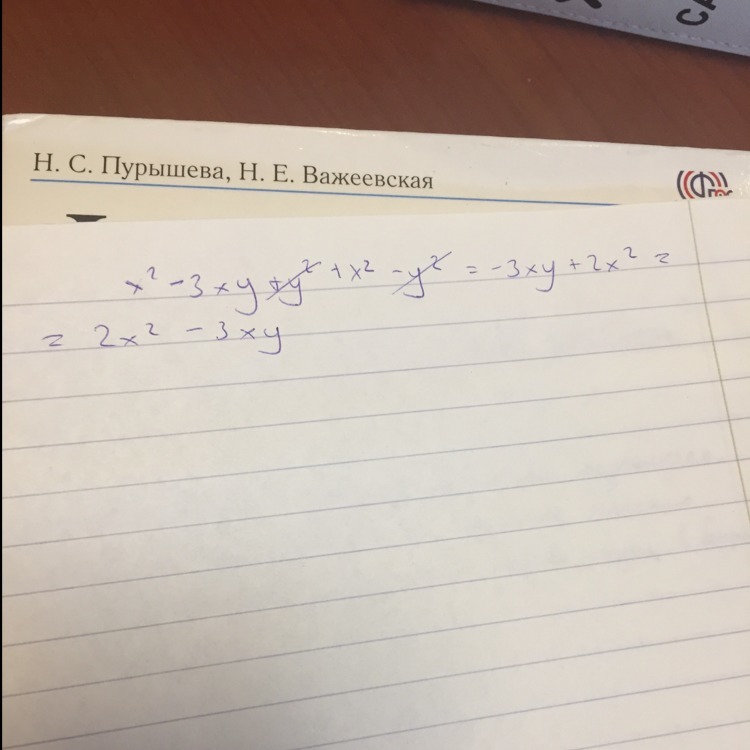 Н. С. Пурышева, Н. Е. Важеевская
x² - 3xy + y² + x² - y² = -3xy + 2x² =
= 2x² - 3xy